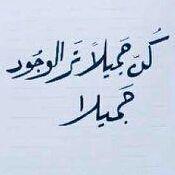 كُن جَميلاً تَرَ الوجُود
جَميلا